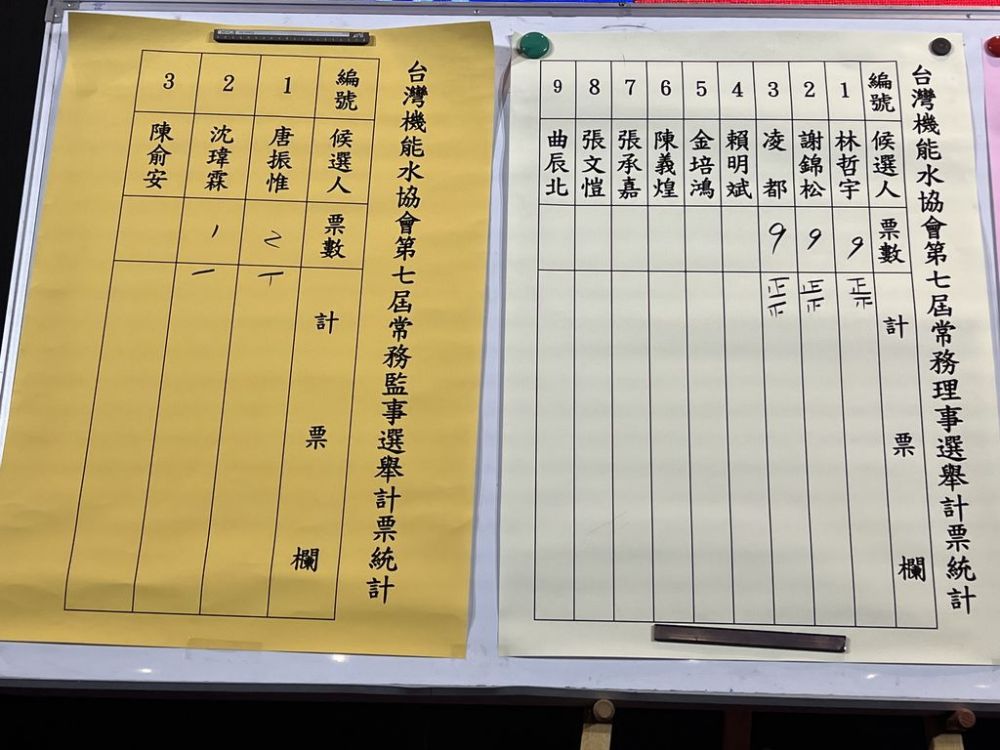 台灣機能水協會第七屆常務監事選舉計票統計
編號 1 2 3
候選人 唐振惟 沈瑋霖 陳俞安
票數 2 1
計票欄 丅 一
台灣機能水協會第七屆常務理事選舉計票統計
編號 1 2 3 4 5 6 7 8 9
候選人 林哲宇 謝錦松 凌都 賴明斌 金培鴻 陳義煌 張承嘉 張文愷 曲辰北
票數 9 9 9
計票欄 正正 正正 正正